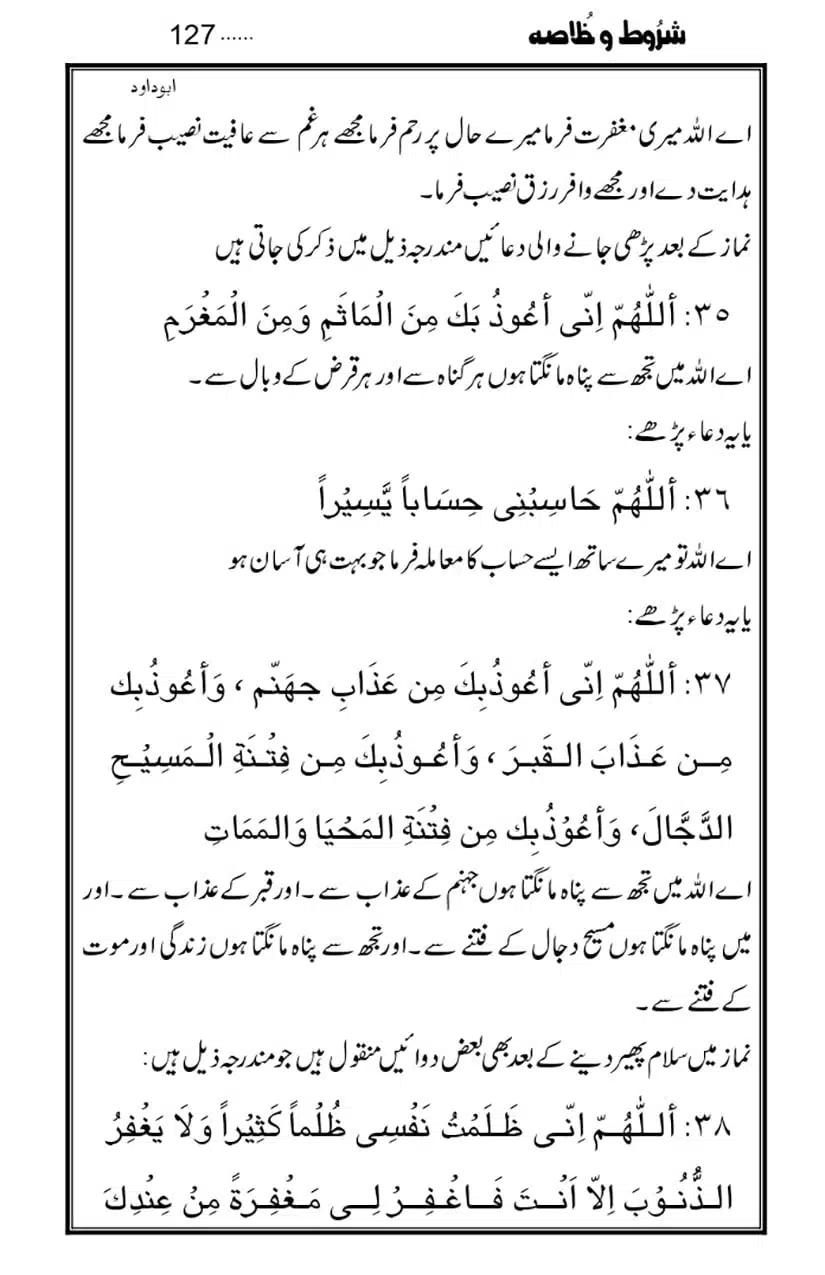 شرُوط و خُلاصه ...... 127
ابوداود
اے اللہ میری مغفرت فرما میرے حال پر رحم فرما مجھے ہر غم سے عافیت نصیب فرما مجھے
ہدایت دے اور مجھے وافر رزق نصیب فرما۔
نماز کے بعد پڑھی جانے والی دعائیں مندرجہ ذیل میں ذکر کی جاتی ہیں
٣٥: أللّٰهُمّ اِنّى أعُوذُ بَكَ مِنَ الْمَاثَمِ وَمِنَ الْمَغْرَمِ
اے اللہ میں تجھ سے پناہ مانگتا ہوں ہر گناہ سے اور ہر قرض کے وبال سے۔
یا یہ دعاء پڑھے:
٣٦: أللّٰهُمّ حَاسِبْنِى حِسَاباً يَّسِيْراً
اے اللہ تو میرے ساتھ ایسے حساب کا معاملہ فرما جو بہت ہی آسان ہو
یا یہ دعاء پڑھے:
٣٧: أللّٰهُمّ اِنّى أعُوذُبِكَ مِن عَذَابِ جهَنّم ، وَأعُوذُبِك
مِـن عَـذَابَ الـقَبـرَ ، وَأعُـوذُبِكَ مِـن فِتْـنَةِ الْـمَسِيْـحِ
الدَّجَّالَ، وَأعُوْذُبِك مِن فِتْنَةِ المَحْيَا وَالمَمَاتِ
اے اللہ میں تجھ سے پناہ مانگتا ہوں جہنم کے عذاب سے ۔اور قبر کے عذاب سے ۔اور
میں پناہ مانگتا ہوں مسیح دجال کے فتنے سے۔اور تجھ سے پناہ مانگتا ہوں زندگی اور موت
کے فتنے سے۔
نماز میں سلام پھیر دینے کے بعد بھی بعض دوائیں منقول ہیں جو مندرجہ ذیل ہیں:
٣٨: أللّٰهُـمّ اِنّـى ظَـلَمْتُ نَفْسِى ظُلْماً كَثِيْراً وَلَا يَغْفِرُ
الـذُّنُـوْبَ اِلاّ اَنْـتَ فَـاغْـفِـرْ لِـى مَـغْـفِـرَةً مِنْ عِنْدِكَ